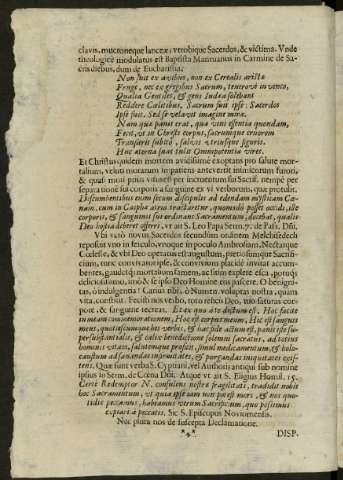 clavis, mucroneque lanceæ; utrobique Sacerdos, & victima. Vnde
theologicè modulatus est Baptista Mantuanus in Carmine de Sa-
cris diebus, dum de Eucharistia:
Non fuit ex
Fruge, nec ex gregibus Sacrum,
Qualia Gentiles, & gens Iudæa solebant
Reddere Cælitibus. Sacrum fuit ipse: Sacerdos
Ipse fuit. Sed se velavit imagine mira.
Nam quæ panis erat, quæ vini essentia quondam,
Fecit, ut in Christi corpus, sacrumque cruorem
Transferit subitò, salvis utriusque figuris.
Hoc æterna facit talis Omnipotentia vires.
Et Christus quidem mortem avidissimè exoptans pro salute mor-
talium, veluti moratum in patiens antevertit interitum furori,
& quasi mori prius visus est per incruentum sui Sacrif. nempè per
separationè sui corporis à sanguine ex vi verborum, quæ protulit.
Discumbentibus enim secum discipulis ad edendam mysticam Cœ-
nam, cum in Caiphæ atrio tractaretur, quomodo posset occidi, ille
corporis, & sanguinis sui ordinans Sacramentum, docebat, qualis
Deo hostia deberet offerri, ut ait S. Leo Papa Serm. 7. de Pass. Dñi.
Vbi vero novus Sacerdos secundum ordinem Melchisedech
reposuit vno in ferculo, vnoque in poculo Ambrosiam, Nectarque
Cœleste, & vbi Deo operatus est angustum, pretiosumque Sacrifi-
cium, tunc convivatur ipse, & convivium placidè invitat accum-
bentes, gaudetq; mortalium famem, ac sitim explere esca, potuq;
deliciosissimo, imò & se ipso Deo Homine eos pascere. O benigni-
tas, ô indulgentia! Carius tibi, ô Numen voluptas nostra, quam
vita, constitui. Fecisti nos verbo, toto reficis Deo, tuo saturas cor-
pore, & sanguine recreas. Et ex quo ab eo dictum est: Hoc facite
in meam commemorationem, Hoc est corpus meum, Hoc est sanguis
meus, quotiescumque his verbis, & hac fide actum est, panis iste su-
persubstantialis, & calix benedictione solemni sacratus, ad totius
hominis vitam, salutemque proficit, simul medicamentum, & holo-
caustum ad sanandas infirmitates, & purgandas iniquitates exis-
tens. Quæ sunt verba S. Cypriani, vel Authoris antiqui sub nomine
ipsius in Serm. de Cœna Dñi. Atque ut ait S. Eligius Homil. 15.
Certè Redemptor N. consulens nostræ fragilitati, tradidit nobis
hoc Sacramentum, ut quia ipse iam non potest mori, & nos quo-
tidiè peccamus, habeamus verum Sacrificium, quo possimus
expiari à peccatis. Sic S. Episcopus Noviomensis.
Nec plura nos de suscepta Declamatione.
DISP.